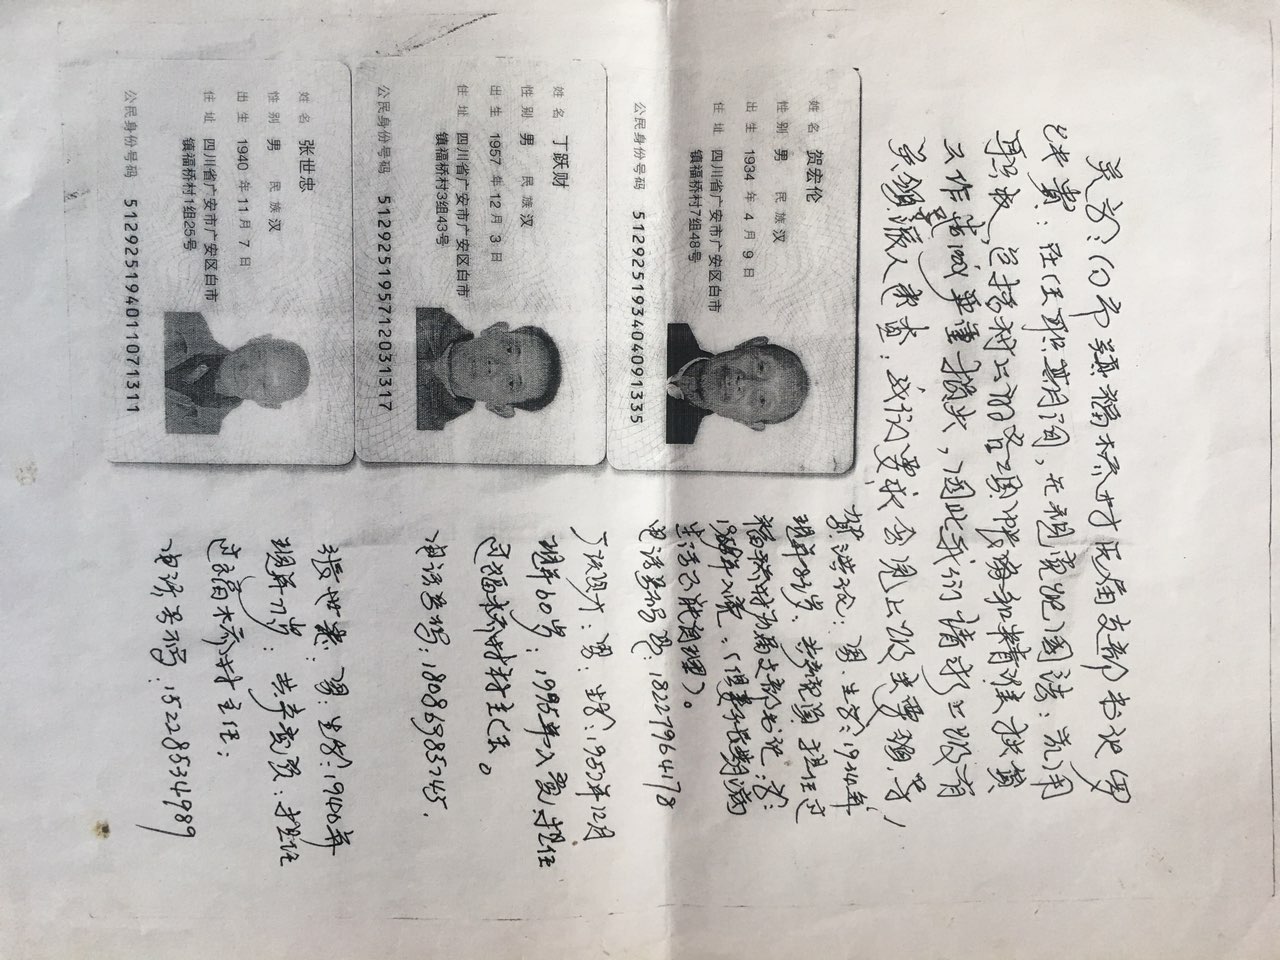 关于：白市镇福桥村 届支部书记
贵：在任职其间，无视党纪国法：乱用
职权，包括村上的各项账务和精准扶贫
工作造成严重损失，因此我们请求上级有
关领导派人 查：我们要求会见上级主要领导，
姓名 贺宏伦
性别 男 民族 汉
出生 1934 年 4 月 9 日
住址 四川省广安市广安区白市
镇福桥村7组48号
公民身份号码 512925193404091335
贺洪论：男：生于：1934年
现年83岁：共产党员 担任过
福桥村为届支部书记：于
入党：（但妻子长期病
生活不能自理）。
电话号码是：18227964178
姓名 丁跃财
性别 男 民族 汉
出生 1957 年 12 月 3 日
住址 四川省广安市广安区白市
镇福桥村3组43号
公民身份号码 512925195712031317
丁跃财：男：生于：1957年12月
现年60岁：1995年入党，担任
过福桥村村主任。
电话号码：18086985245.
姓名 张世忠
性别 男 民族 汉
出生 1940 年 11 月 7 日
住址 四川省广安市广安区白市
镇福桥村1组25号
公民身份号码 512925194011071311
张世忠：男：生于：1940年
现年 岁：共产党员：担任
过福桥村主任：
电话号码：15228534989